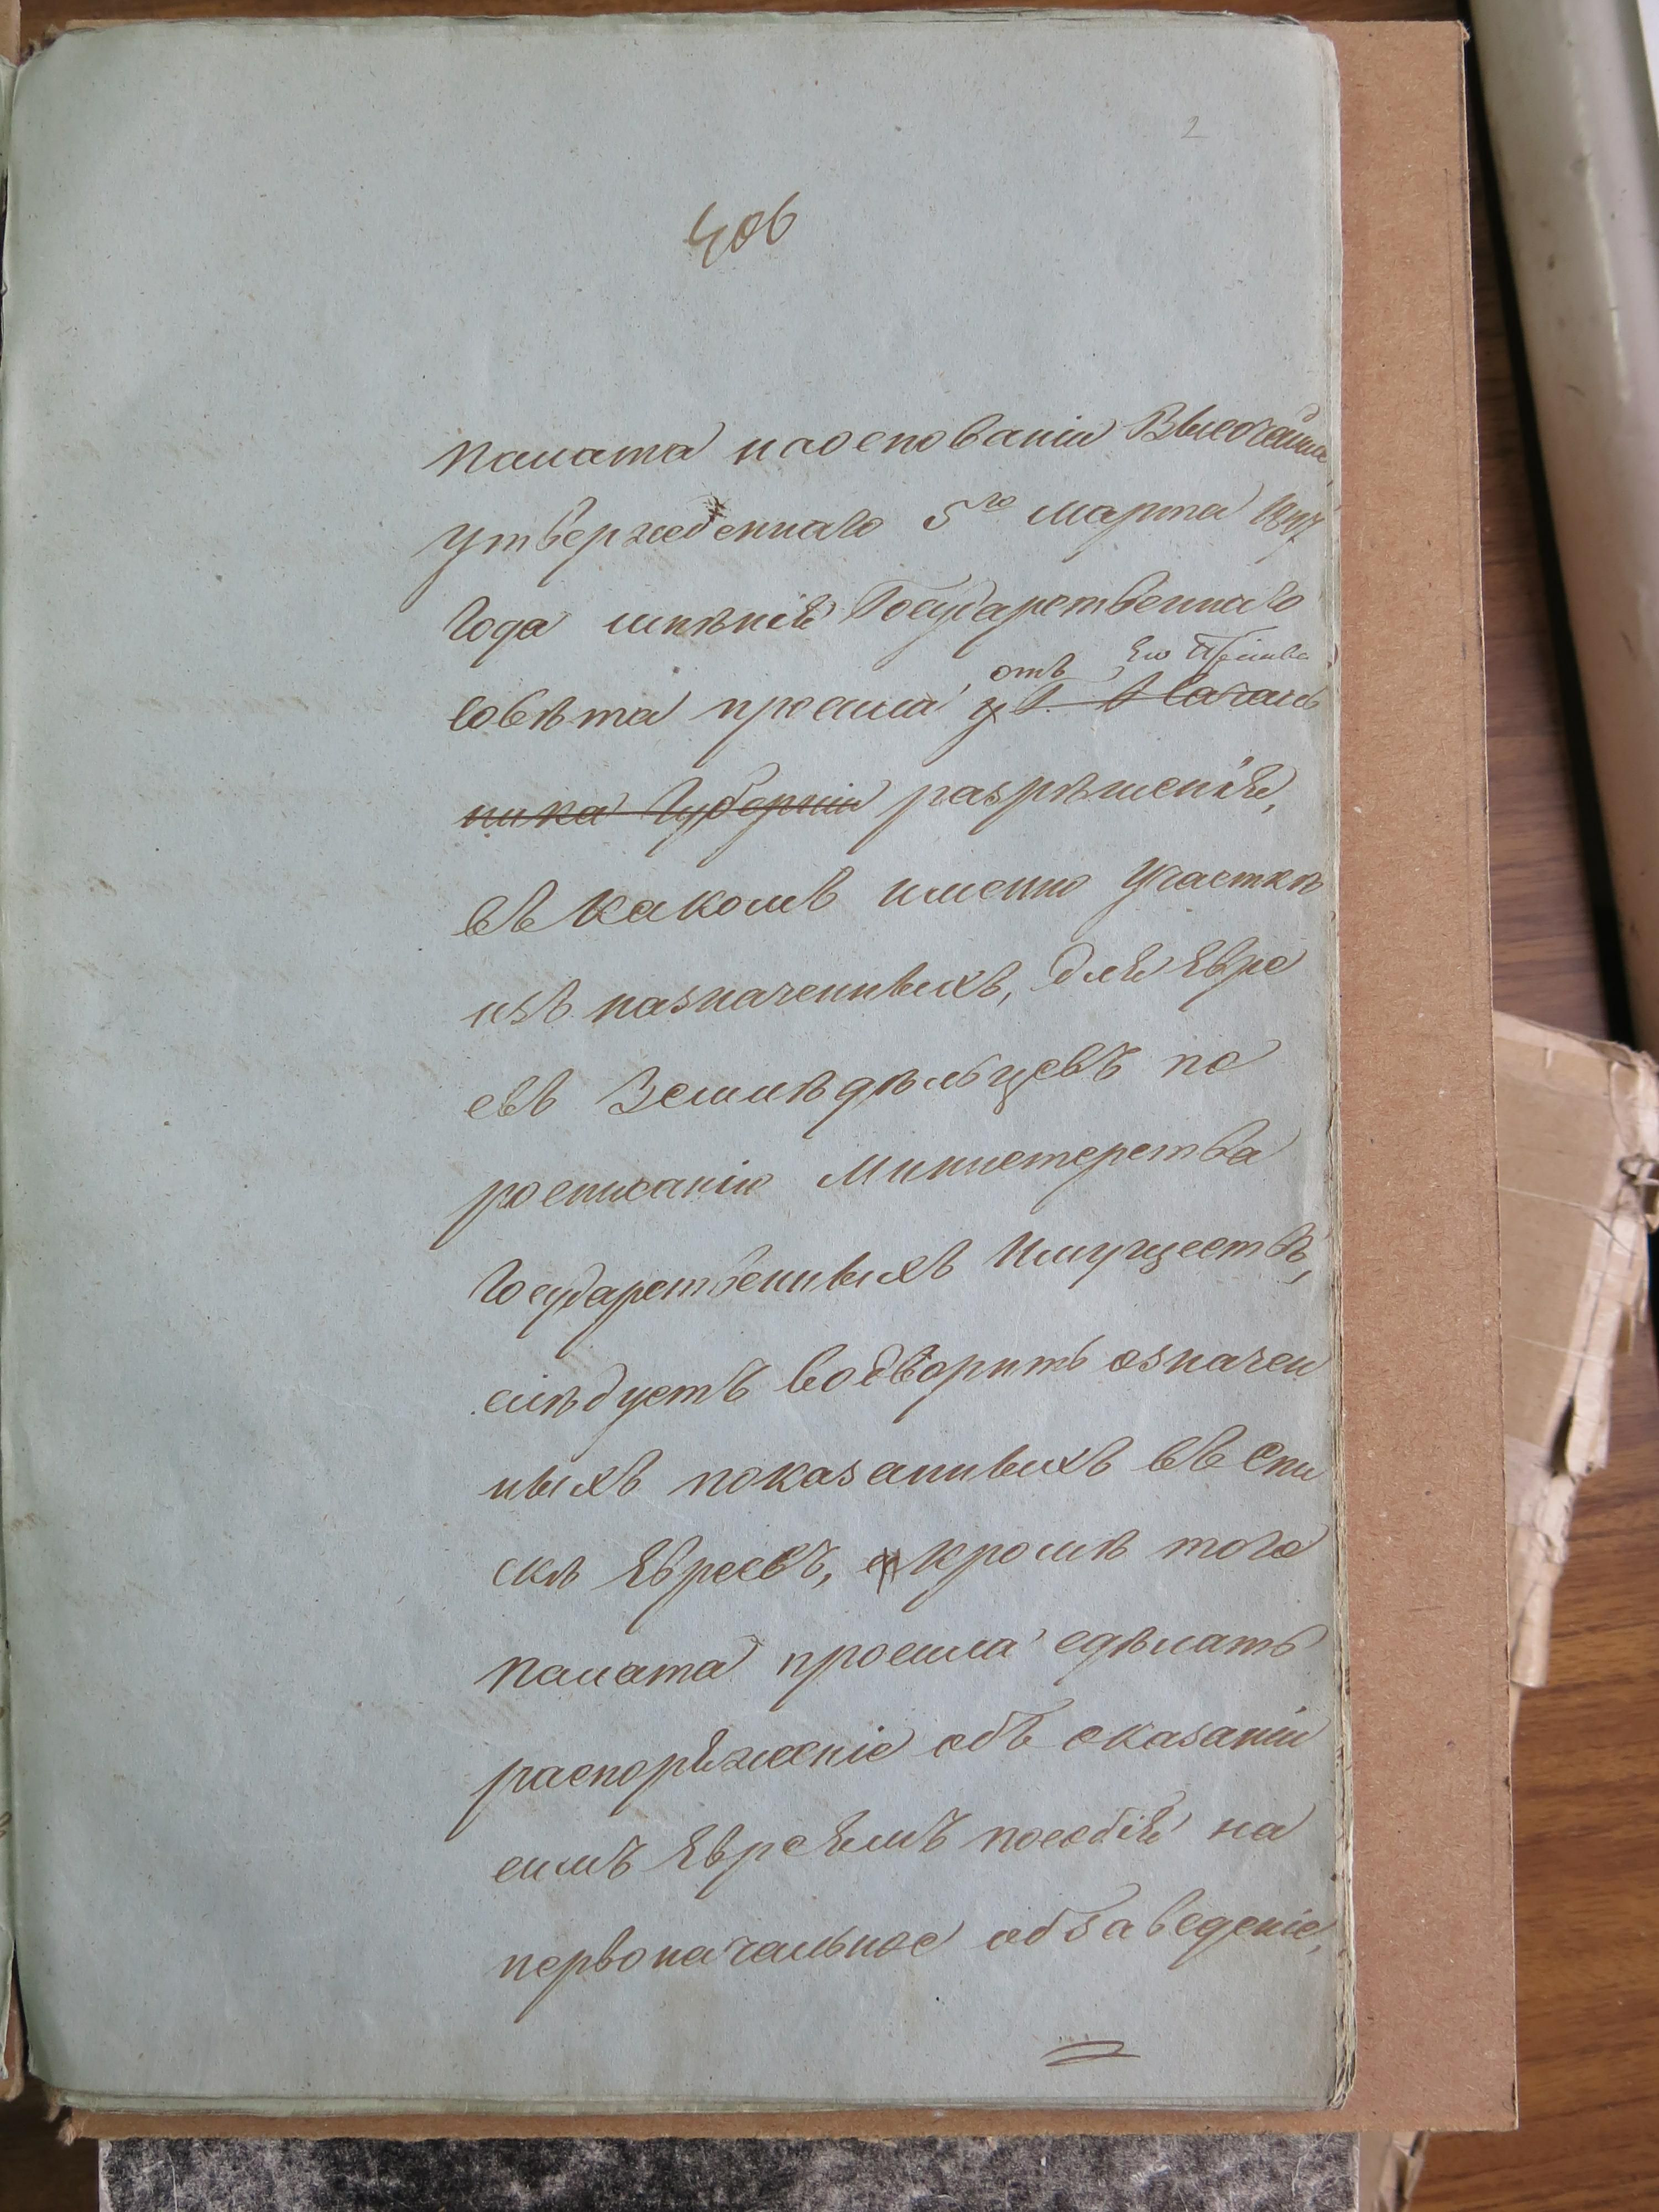 2
406
палата наоснованіи Высочайше
утвержденнаго 5го марта 1847
года мнѣнія Государственнаго
совѣта просила отъ Его Прсінва
у Г. Началь
ника Губерніи разрѣшенія,
въ какомъ именно участкѣ
изъ назначенныхъ, для Евре
евъ Земледѣльцевъ по
росписанію Министерства
Государственныхъ Имуществъ,
слѣдуетъ водворить означен
ныхъ показанныхъ въ Спи
скѣ Евреевъ, кромѣ того
палата просила сдѣлать
распоряженіе объ оказаніи
симъ Евреямъ пособія на
первоначальное обзаведеніе,